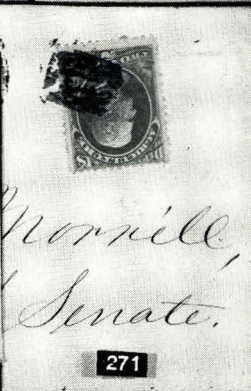 Morrill,
Senate.
271